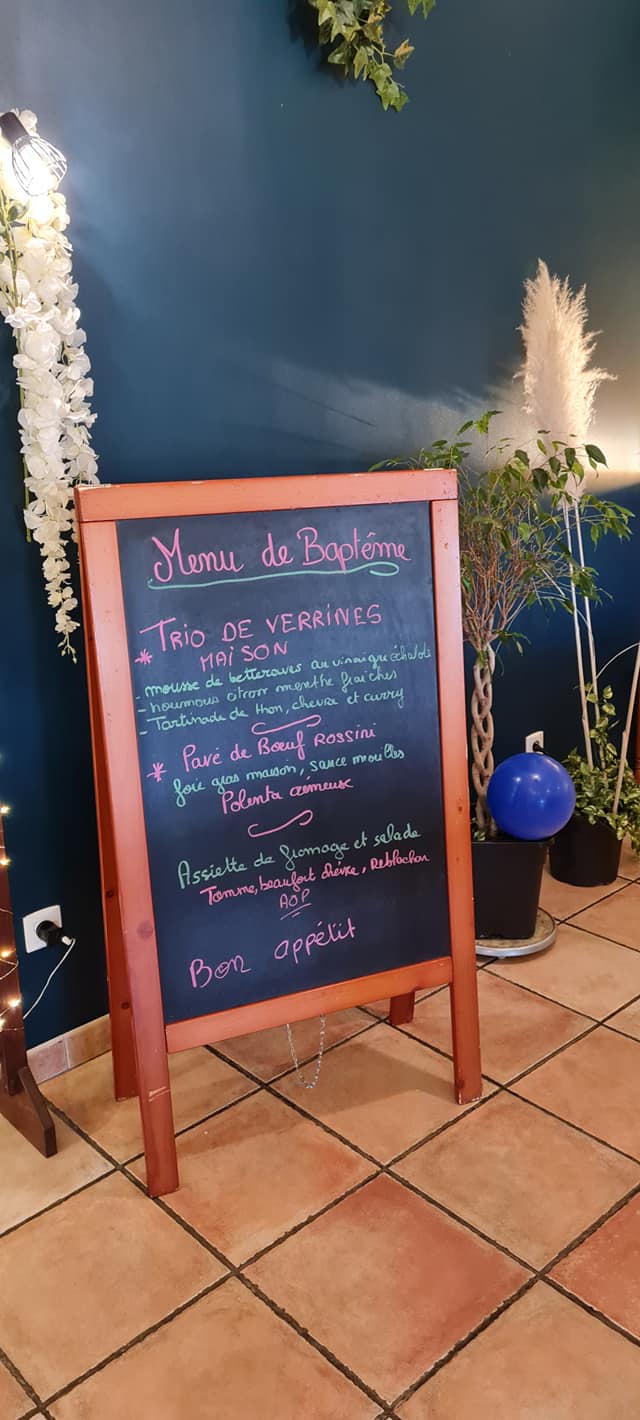 Menu de Baptême
TRIO DE VERRINES
* MAISON
- mousse de betteraves au vinaigre échalote
- houmous citron menthe fraiches
- Tartinade de thon, chevre et curry
* Pavé de Bœuf ROSSINI
foie gras maison, sauce morilles
Polenta crémeuse
Assiette de fromage et salade
Tomme, beaufort chèvre, Reblochon
AOP
Bon appétit